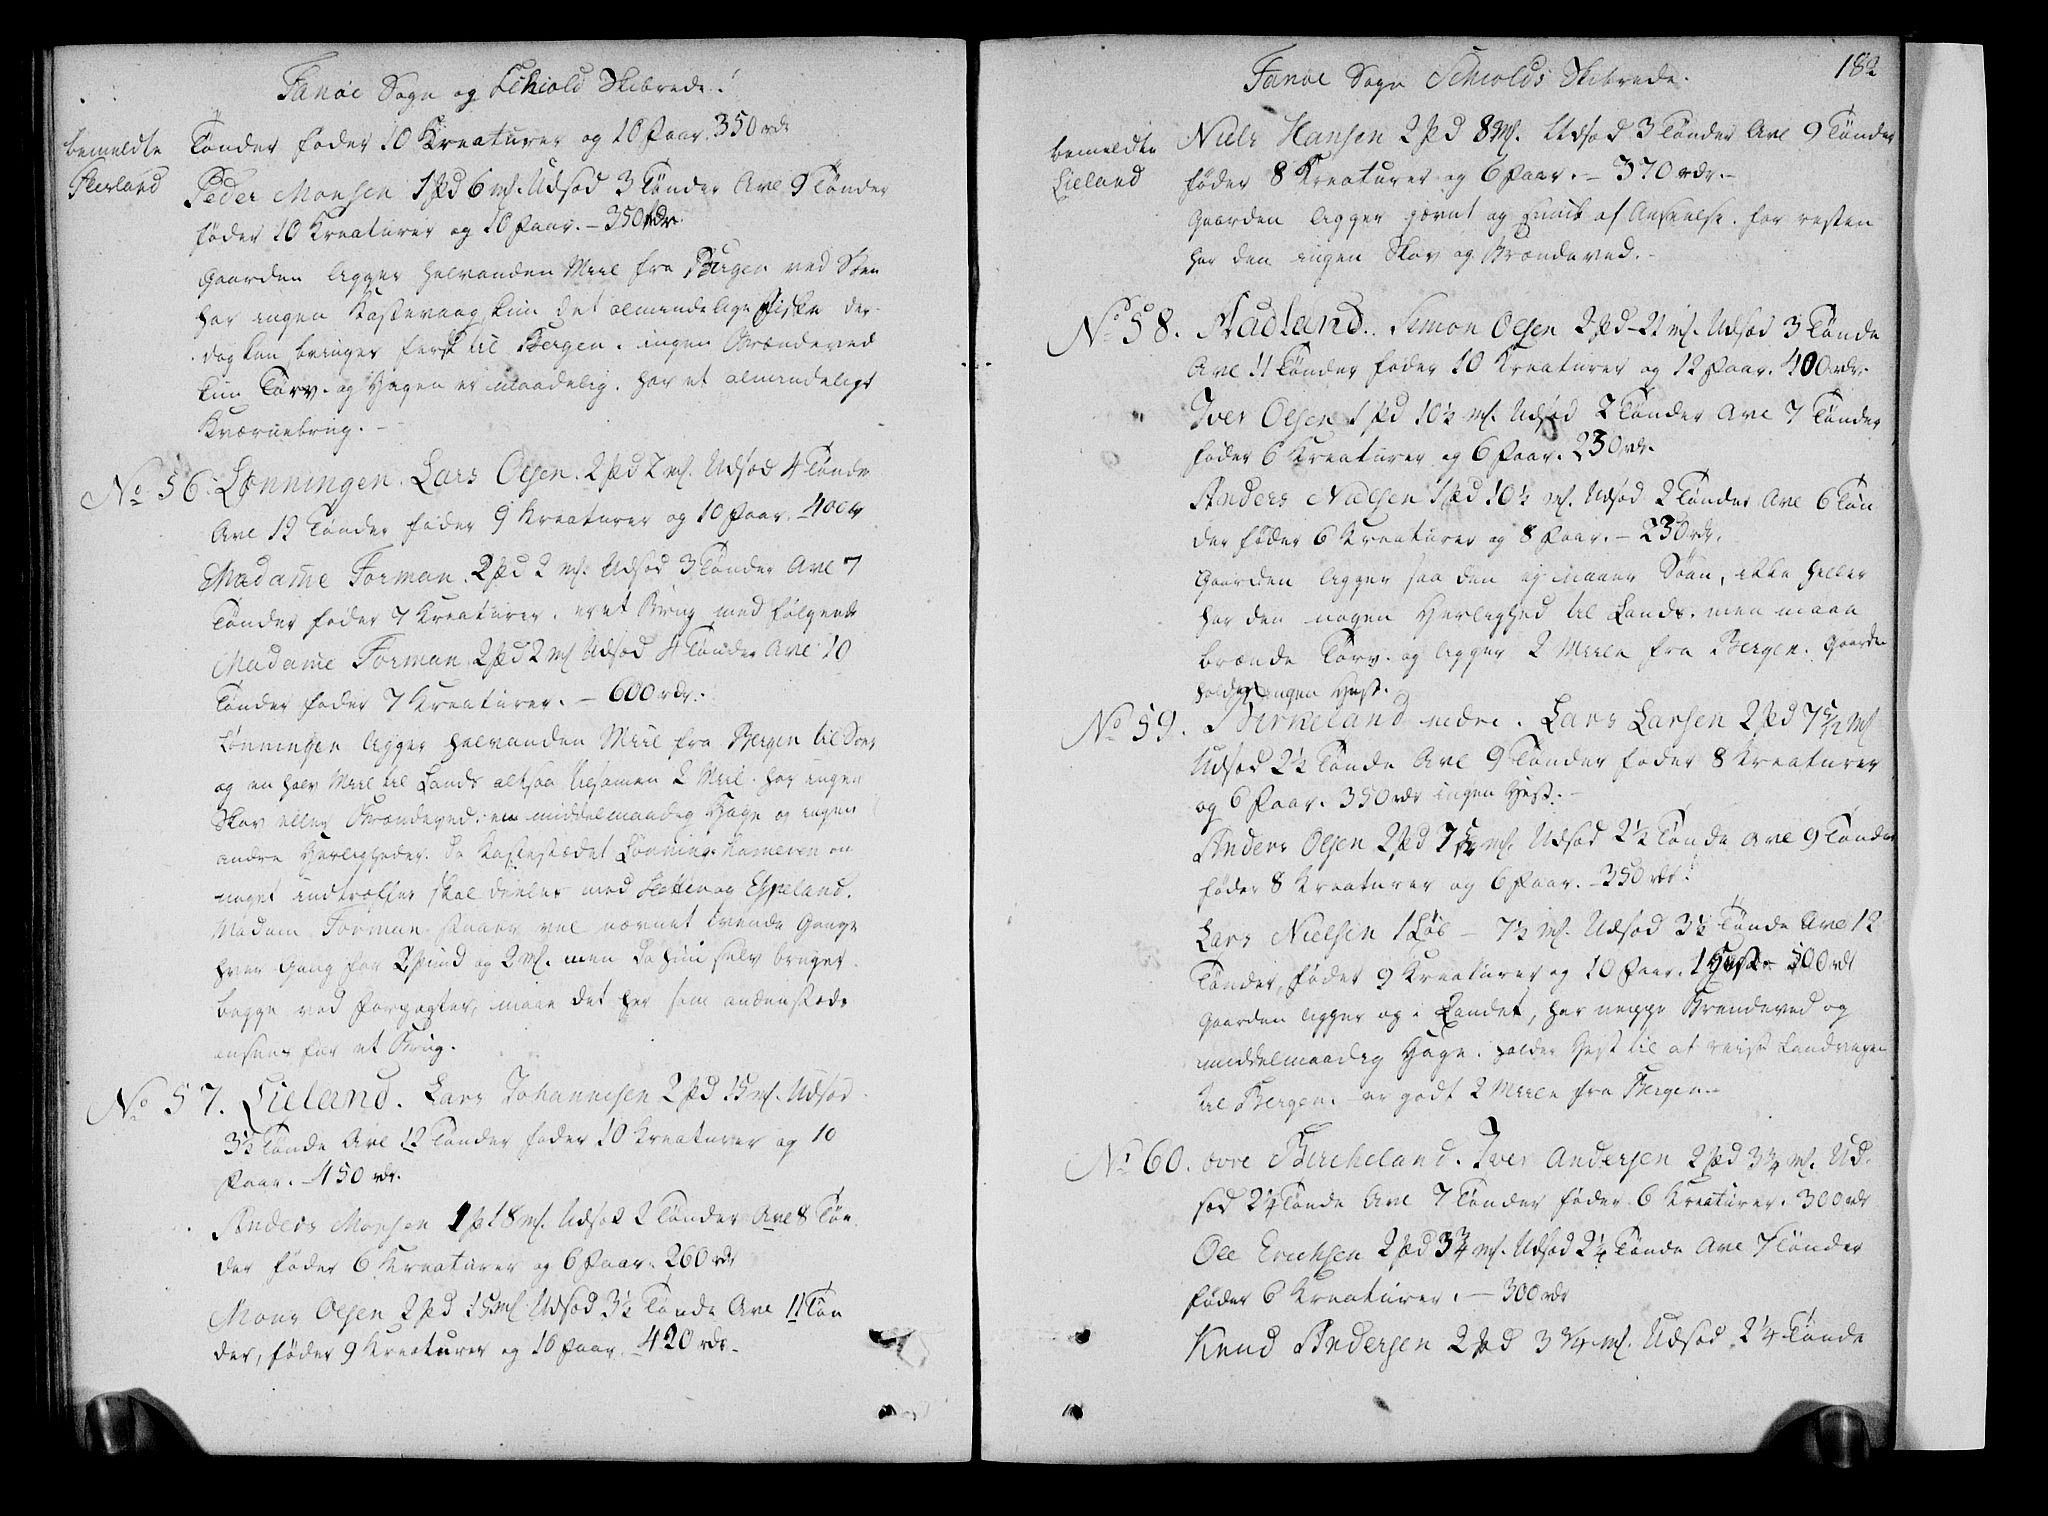 Fanøe Sogn og Schiold Skibrede.
bemeldte
Skerland
Tønder føder 10 Kreaturer og 10 Faar. 350 rdr
Peder Monsen 1 pd 6 mk. Udsæd 3 Tønder Avl 9 Tønder
føder 10 Kreaturer og 10 Faar. – 350 rdr.
Gaarden ligger halvanden Miil fra Bergen ved Søen
har ingen Kastevaag, kun det almindelige Fiske der-
dog kan bringes fersk til Bergen. ingen Brændeved
kun Torv. og Hagen er maadelig. har et almindeligt
Kværnebrug. –
No 56. Lønningen. Lars Olsen. 2 pd 2 mk. Udsæd 4 Tønde
Avl 12 Tønder føder 9 Kreaturer og 10 Faar. 400 rdr
Madame Forman. 2 pd 2 mk. Udsæd 3 Tønder Avl 7
Tønder føder 7 Kreaturer. er et Brug med følgende
Madame Forman. 2 pd 2 mk Udsæd 4 Tønder Avl 10
Tønder føder 7 Kreaturer. – 600 rdr.
Lønningen ligger halvanden Miil fra Bergen til Søes
og en halv Miil til Lands altsaa tilsamen 2 Miil. har ingen
Skov eller Brændeved. en middelmaadig Hage og ingen
andre Herligheder. da Kastestædet Lønnings Hameren om
noget indtræffer skal deeles med og Espeland.
Madam Forman staaer vel nævnet tvende Gange
hver Gang for 2 Pund og 2 mk. men da hun selv bruger
begge ved Forpagter, maae det her som andenstæds
ansees for et Brug.
No 57. Lieland. Lars Johannesen 2 pd 15 mk. Udsæd
3½ Tønde Avl 12 Tønder føder 10 Kreaturer og 10
Faar. – 450 rdr.
Anders Monsen 1 pd 18 mk. Udsæd 2 Tønder Avl 8 Tøn
der føder 6 Kreaturer og 6 Faar. 260 rdr
Mons Olsen 2 pd 15 mk Udsæd 3½ Tønde Avl 11 Tøn
der, føder 9 Kreaturer og 10 Faar. – 420 rdr.
Fanøe Sogn Schiolds Skibrede.
182
bemeldte
Lieland
Niels Hansen 2 pd 8 mk. Udsæd 3 Tønder Avl 9 Tønder
føder 8 Kreaturer og 6 Faar. – 370 rdr. –
Gaarden ligger jævnt og smuk af Anseelse. for resten
har den ingen Skov og Brændeved. –
No 58. Aadland. Simon Olsen 2 pd 21 mk. Udsæd 3 Tønde
Avl 11 Tønder føder 10 Kreaturer og 12 Faar. 400 rdr.
Iver Olsen 1 pd 10½ mk. Udsæd 2 Tønder Avl 7 Tønder
føder 6 Kreaturer og 6 Faar. 230 rdr.
Anders Nielsen 1 pd 10½ mk. Udsæd 2 Tønder Avl 6 Tøn
der føder 6 Kreaturer og 8 Faar. – 230 rdr.
Gaarden ligger saa den ej naaer Søen, ikke heller
har den nogen Herlighed til Lands. men maae
brænde Torv. og ligger 2 Miile fra Bergen. Gaarden
holder ingen Hest.
No 59. Birkeland nedre. Lars Larsen 2 pd 7 5/12 mk
Udsæd 2½ Tønde Avl 9 Tønder føder 8 Kreaturer
og 6 Faar. 350 rdr ingen Hest. –
Anders Olsen 2 pd 7 5/12 mk. Udsæd 2½ Tønde Avl 9 Tønder
føder 8 Kreaturer og 6 Faar. – 350 rdr.
Lars Nielsen 1 Løb – 7½ mk. Udsæd 3½ Tønde Avl 12
Tønder, føder 9 Kreaturer og 10 Faar. 1 Hest. 500 rdr
Gaarden ligger op i Landet, har neppe Brændeved og
middelmaadig Hage. holder Hest til at reise Landveyen
til Bergen. er godt 2 Miile fra Bergen. –
No 60. øvre Bircheland. Iver Andersen 2 pd 3¾ mk. Ud-
sæd 2¼ Tønde Avl 7 Tønder føder 6 Kreaturer. 300 rdr
Ole Erichsen 2 pd 3¾ mk. Udsæd 2¼ Tønde Avl 7 Tønder
føder 6 Kreaturer. – 300 rdr
Knud Andersen 2 pd 3¾ mk. Udsæd 2¼ Tønde